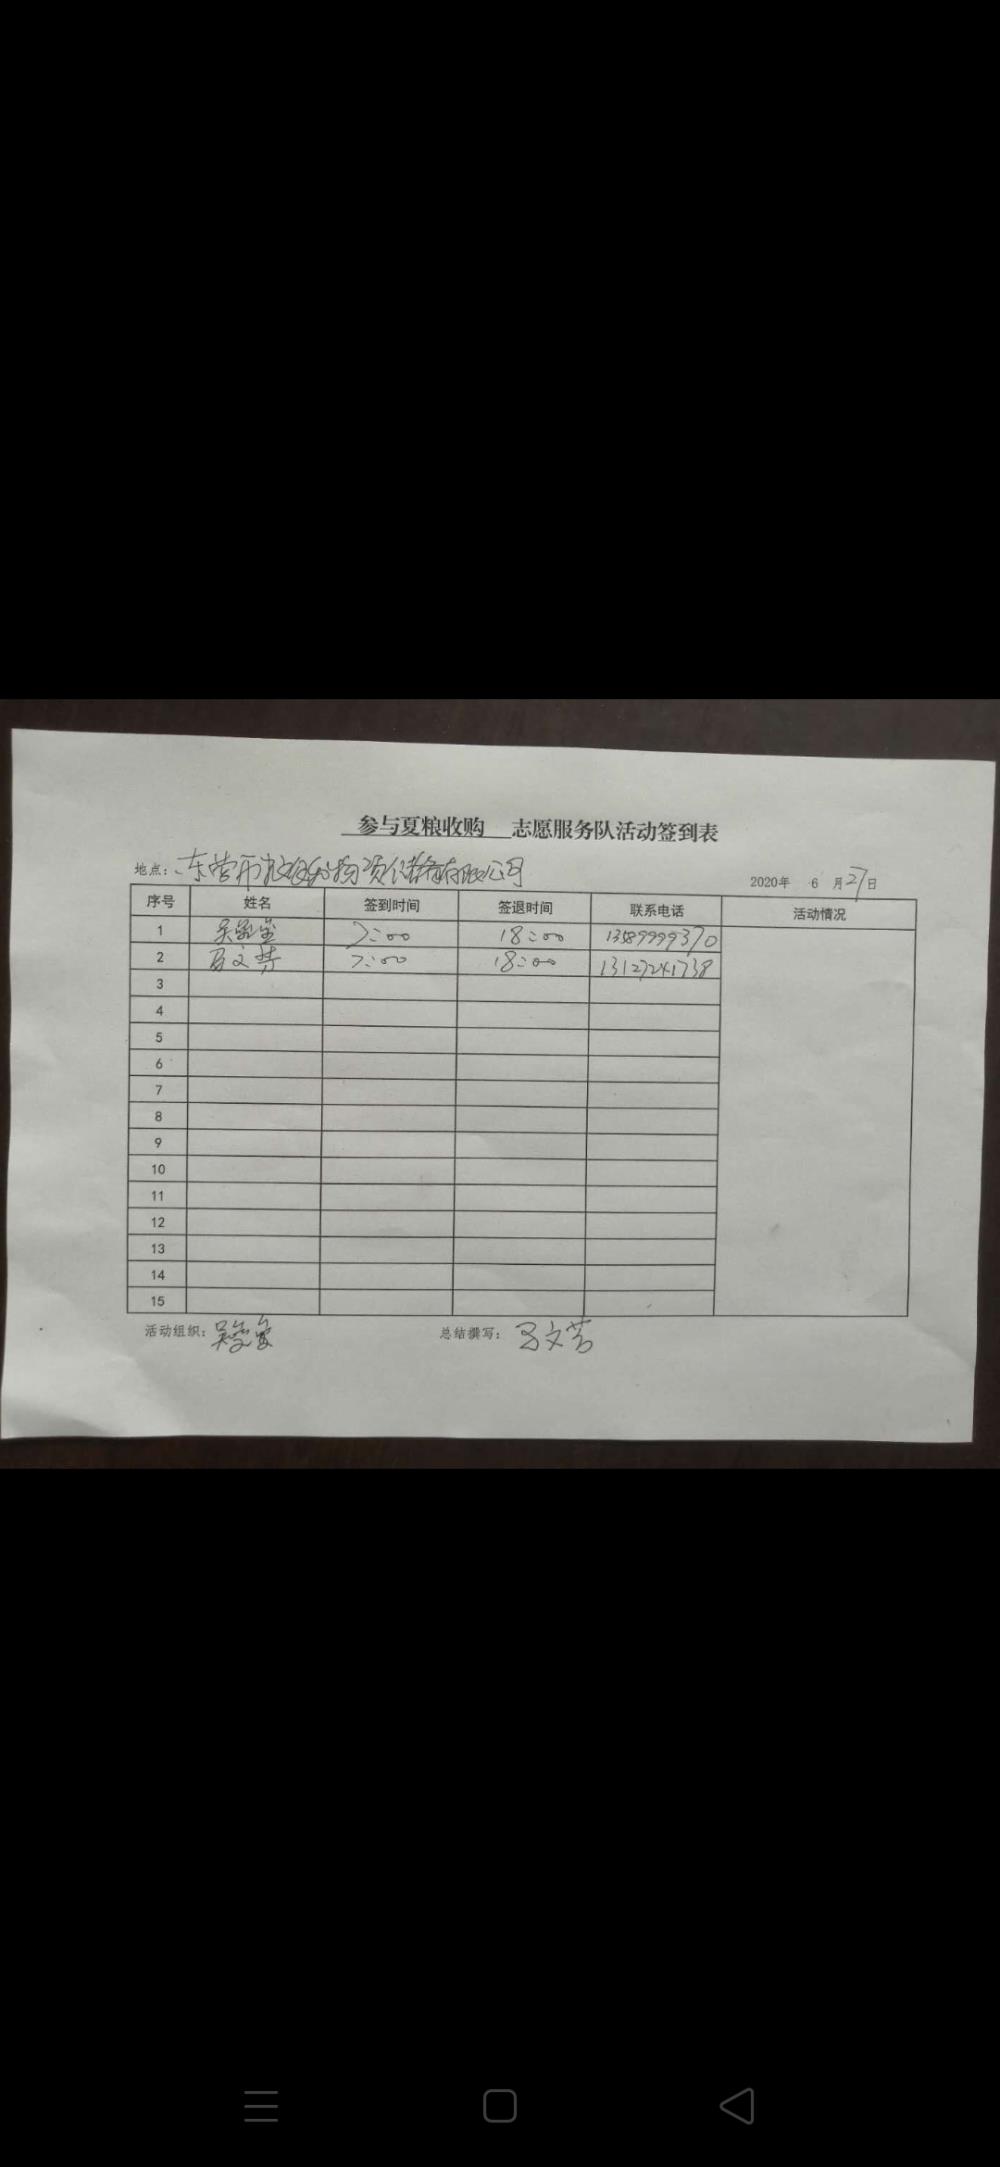 参与夏粮收购 志愿服务队活动签到表
地点: 东营市 物资储备有限公司
2020年 6 月27日
序号 姓名 签到时间 签退时间 联系电话 活动情况
1 7:00 18:00 13589999370
2 7:00 18:00 13127241738
3
4
5
6
7
8
9
10
11
12
13
14
15
活动组织: 总结撰写: 马文芳